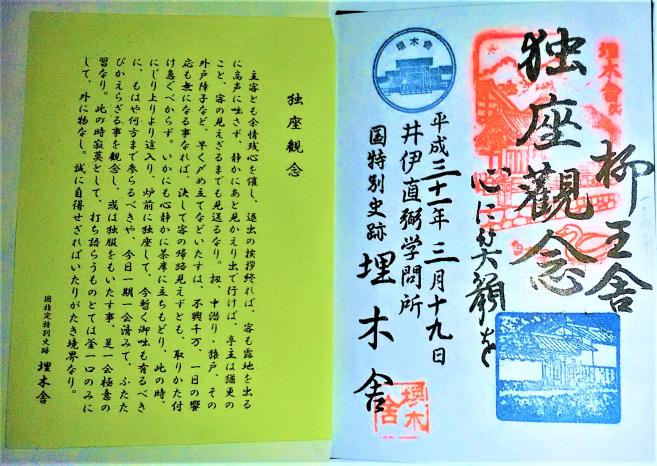 柳王舎
独座觀念
心に笑顔を
平成三十一年三月十九日
井伊直弼学問所
国特別史跡
埋木舎
埋木舎
埋木舎
埋木舎
独座観念
主客とも余情残心を催し、退出の挨拶終れば、客も露地を出る
に高声に咄さず、静かにあと見かえり出て行けば、亭主は猶更の
こと、客の見えざるまでも見送るなり。扨、中潜り・猿戸、その
外戸障子など、早く〆め立てなどいたすは、不興千万、一日の饗
応も無になる事なれば、決して客の帰路見えずとも、取りかた付
け急ぐべからず。いかにも心静かに茶席に立ちもどり、此の時、
にじり上りより這入り、炉前に独座して、今暫く御咄も有るべき
に、もはや何方まで参らるべきや、今日一期一会済みて、ふたた
びかえらざる事を観念し、或は独服をもいたす事、是一会極意の
習なり。此の時寂莫として、打ち語らうものとては釜一口のみに
して、外に物なし。誠に自得せざればいたりがたき境界なり。
国指定特別史跡 埋木舎